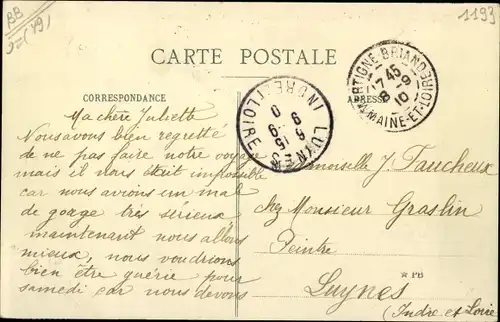 BB
1193
CARTE POSTALE
MARTIGNÉ-BRIAND
17 45
8 -9
10
MAINE-ET-LOIRE
LUYNES
INDRE-ET-LOIRE
6 15
9 -9
CORRESPONDANCE
ADRESSE
Ma chère Juliette
Nous avons bien regretté
de ne pas faire notre voyage
mais il nous était impossible
car nous avions un mal
de gorge très sérieux
maintenant nous allons
mieux, nous voudrions
bien être guérie pour
samedi car nous devons
Mademoiselle J. Faucheux
chez Monsieur Graslin
Peintre
* PB
Luynes
(Indre et Loire